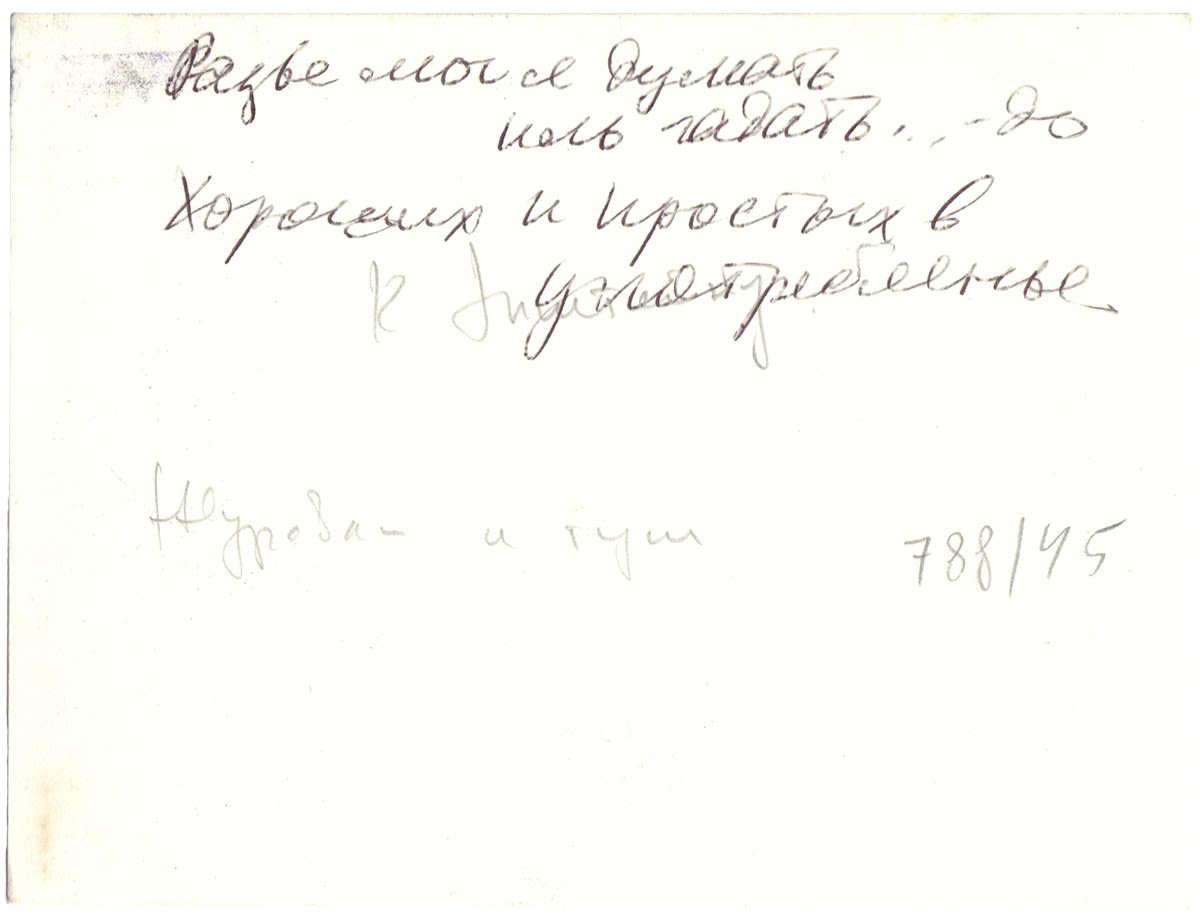 Разве мог я думать
иль гадать... - до
Хороших и простых в
употребленье
К
и туш
788/45